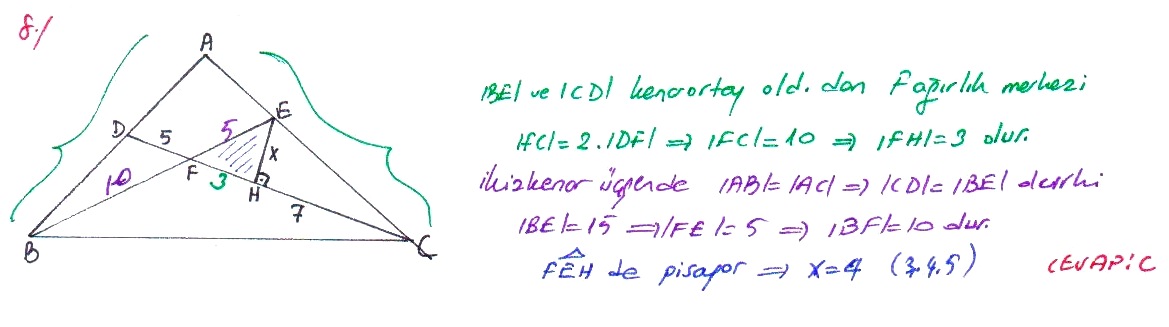 8./
A
D
5
5
E
x
F
3
H
7
10
B
C
|BE| ve |CD| kenarortay old. dan F ağırlık merkezi
|FC|= 2.|DF| ⇒ |FC|= 10 ⇒ |FH|= 3 olur.
ikizkenar üçgende |AB|=|AC| ⇒ |CD|=|BE|
|BE|=15 ⇒ |FE|= 5 ⇒ |BF|=10 dur.
FÊH de pisagor ⇒ x=4 (3.4.5)
CEVAP: C